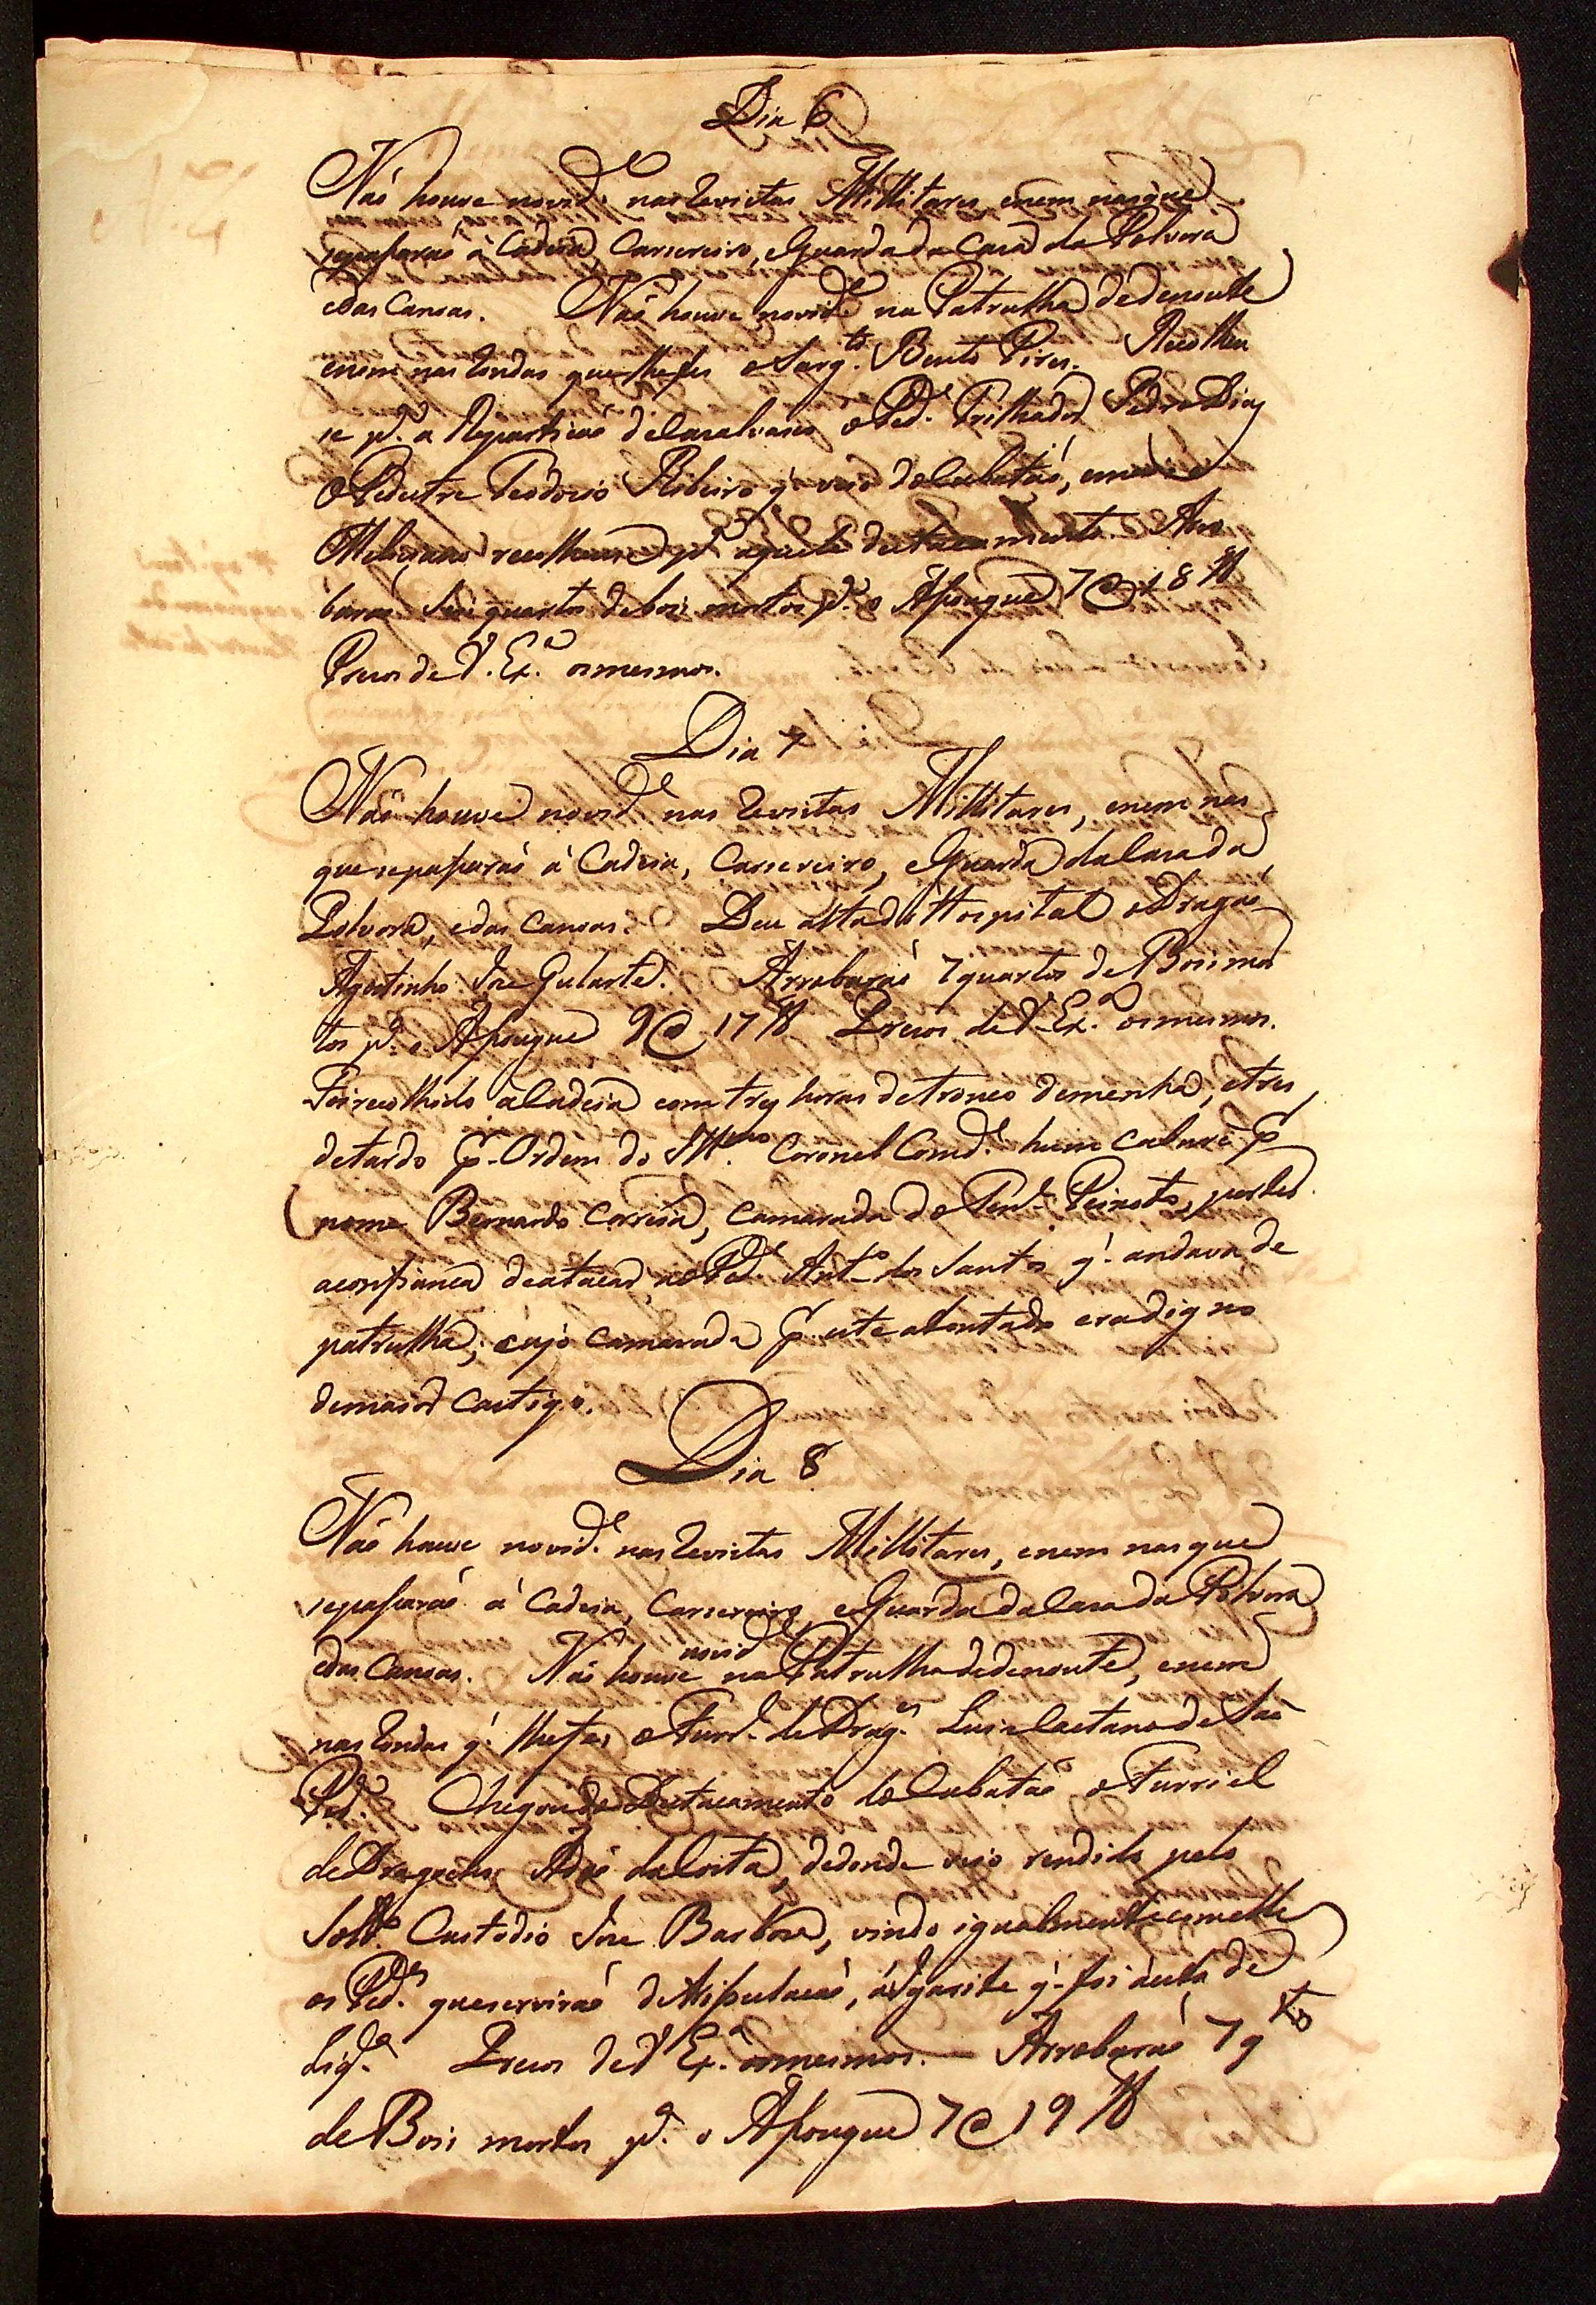 Dia 6
Naõ houve novid.e nas Revistas Millitares, enem nas que
sepassaraõ á Cadeia, Carcereiro, eGuarda da Caza da Polvora
edas Canoas. Naõ houve novid.e na Patrulha dedenoute
enem nas Rondas que lhefes oSarg.to Bento Pires. Recolheu
se p.a a Repartiçaõ deCasalvasco oPed. Trilhador Pedro Dias
OPedestre Teodozio Ribeiro q̃ veio doCubataõ,
Miliciano p.a aquele destacamento. Arro
baraõ Seis quartos debois mortos p.a o Asougue 7@ 18 lb
Prezos de V. Ex.a osmesmos.
Dia 7
Naõ houve novid.e nas Revistas Millitares, enem nas
que sepassaraõ á Cadeia, Carcereiro, eGuarda daCaza da
Polvora, edas Canoas. Deu altado Hospital oDragaõ
Agostinho Joze Gularte. Arrobaraõ 7 quartos de Bois mor
tos p.a o Asougue 9@ 17 lb Prezos de V. Ex.a osmesmos.
Foi recolhido áCadeia com tres horas detronco demenhã, etres
detarde p.r Ordem do Ill.mo Coronel Comd.e hum p.r
nome Bernardo Correia, Camarada do Ten.e Peixoto, porter
aconfiança deatacar aoPed.e Ant.o dos Santos q̃ andava de
patrulha; cujo Camarada p.r este atentado eradigno
demaior Castigo.
Dia 8
Naõ houve novid.e nas Revistas Millitares, enem nas que
sepassaraõ á Cadeia, Carcereiro, eGuarda daCaza da Polvora
edas Canoas. Naõ houve novid.e na Patrulha dedenoute, enem
nas Rondas q̃ lhefes oFurr.el deDrag.es Luis Caetano de Saõ
Ped.o Chegou do Destacamento doCubataõ oFurriel
deDragoens Adaõ daCosta, dedonde veio rendido pelo
Sold.o Custodio Joze Barboza, vindo igualmente comelle
os Ped.es queserviraõ deTripulaçaõ, áIgarite q̃ foi áesta de
lig.a Prezos deV. Ex.a osmesmos. Arrobaraõ 7 q.tos
de Bois mortos p.a o Asougue 7@ 19 lb